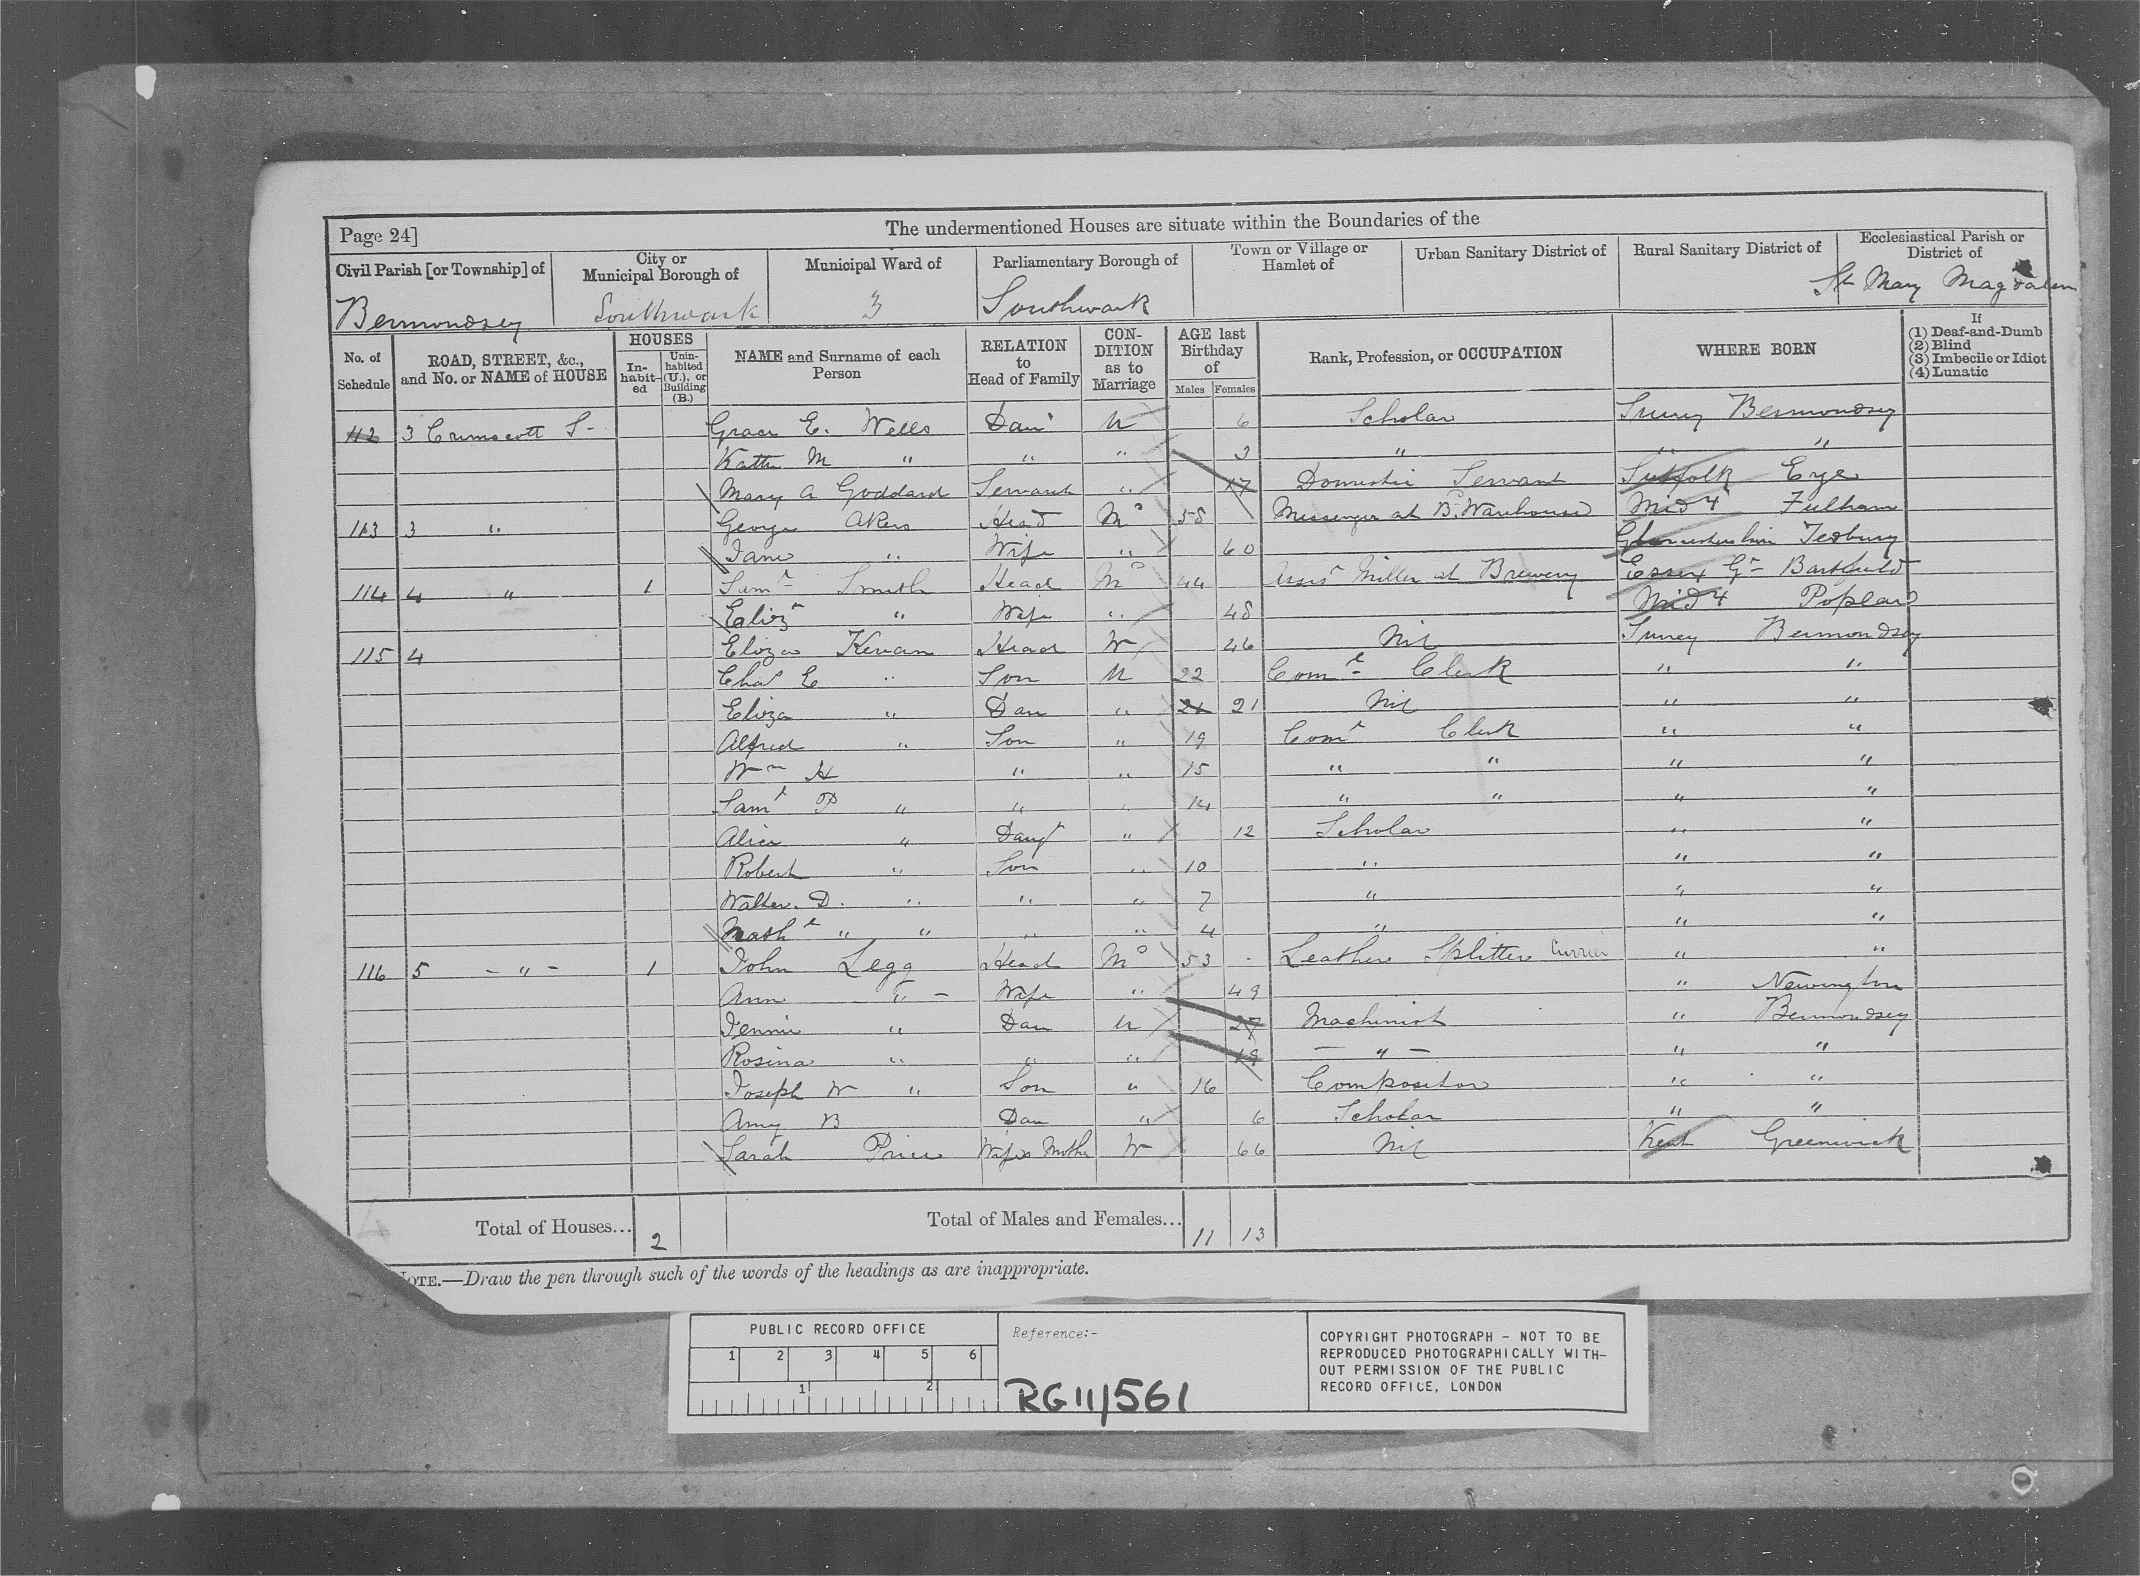 Page 24]
The undermentioned Houses are situate within the Boundaries of the
Civil Parish [or Township] of
City or Municipal Borough of
Municipal Ward of
Parliamentary Borough of
Town or Village or Hamlet of
Urban Sanitary District of
Rural Sanitary District of
Ecclesiastical Parish or District of
Bermondsey Southwark 3 Southwark St Mary Magdalen
No. of Schedule
ROAD, STREET, &c., and No. or NAME of HOUSE
HOUSES
In-habit-ed
Unin-habited (U.), or Building (B.)
NAME and Surname of each Person
RELATION to Head of Family
CON-DITION as to Marriage
AGE last Birthday of
Males Females
Rank, Profession, or OCCUPATION
WHERE BORN
If
(1) Deaf-and-Dumb
(2) Blind
(3) Imbecile or Idiot
(4) Lunatic
112 3 Crimscott S- Grace E. Wells Dau U 6 Scholar Surrey Bermondsey
Kate M " " " 3 " " "
Mary A Goddard Servant " 17 Domestic Servant Suffolk Eye
113 3 " George Akers Head Md 58 Messenger at B. Warehouse Midx Fulham
Jane " Wife " 60 Gloucestershire Tedbury
114 4 " 1 Saml Smith Head Md 44 Assist Miller at Brewery Essex Gt Barfield
Elizh " Wife " 48 Midx Poplar
115 4 Eliza Kevan Head W 46 Nil Surrey Bermondsey
Chas E " Son U 22 Coml Clerk " "
Eliza " Dau " 21 21 Nil " "
Alfred " Son " 19 Coml Clerk " "
Wm H " " 15 " " " "
Saml P " " " 14 " " " "
Alice " Daugt " 12 Scholar " "
Robert " Son " 10 " " "
Walter. D. " " " 7 " " "
Nathl " " " " 4 " " "
116 5 - " - 1 John Legg Head Md 53 Leather Splitter Currier " "
Ann " - Wife " 49 " Newington
Jennie " Dau U 27 Machinist " Bermondsey
Rosina " " " 19 - " - " "
Joseph W " Son " 16 Compositor " "
Amy B Dau " 6 Scholar " "
Sarah Price Wifes Mother W 66 Nil Kent Greenwich
Total of Houses... 2
Total of Males and Females... 11 13
NOTE.—Draw the pen through such of the words of the headings as are inappropriate.
PUBLIC RECORD OFFICE
1 2 3 4 5 6
1 2
Reference:-
RG 11/561
COPYRIGHT PHOTOGRAPH - NOT TO BE
REPRODUCED PHOTOGRAPHICALLY WITH-
OUT PERMISSION OF THE PUBLIC
RECORD OFFICE, LONDON